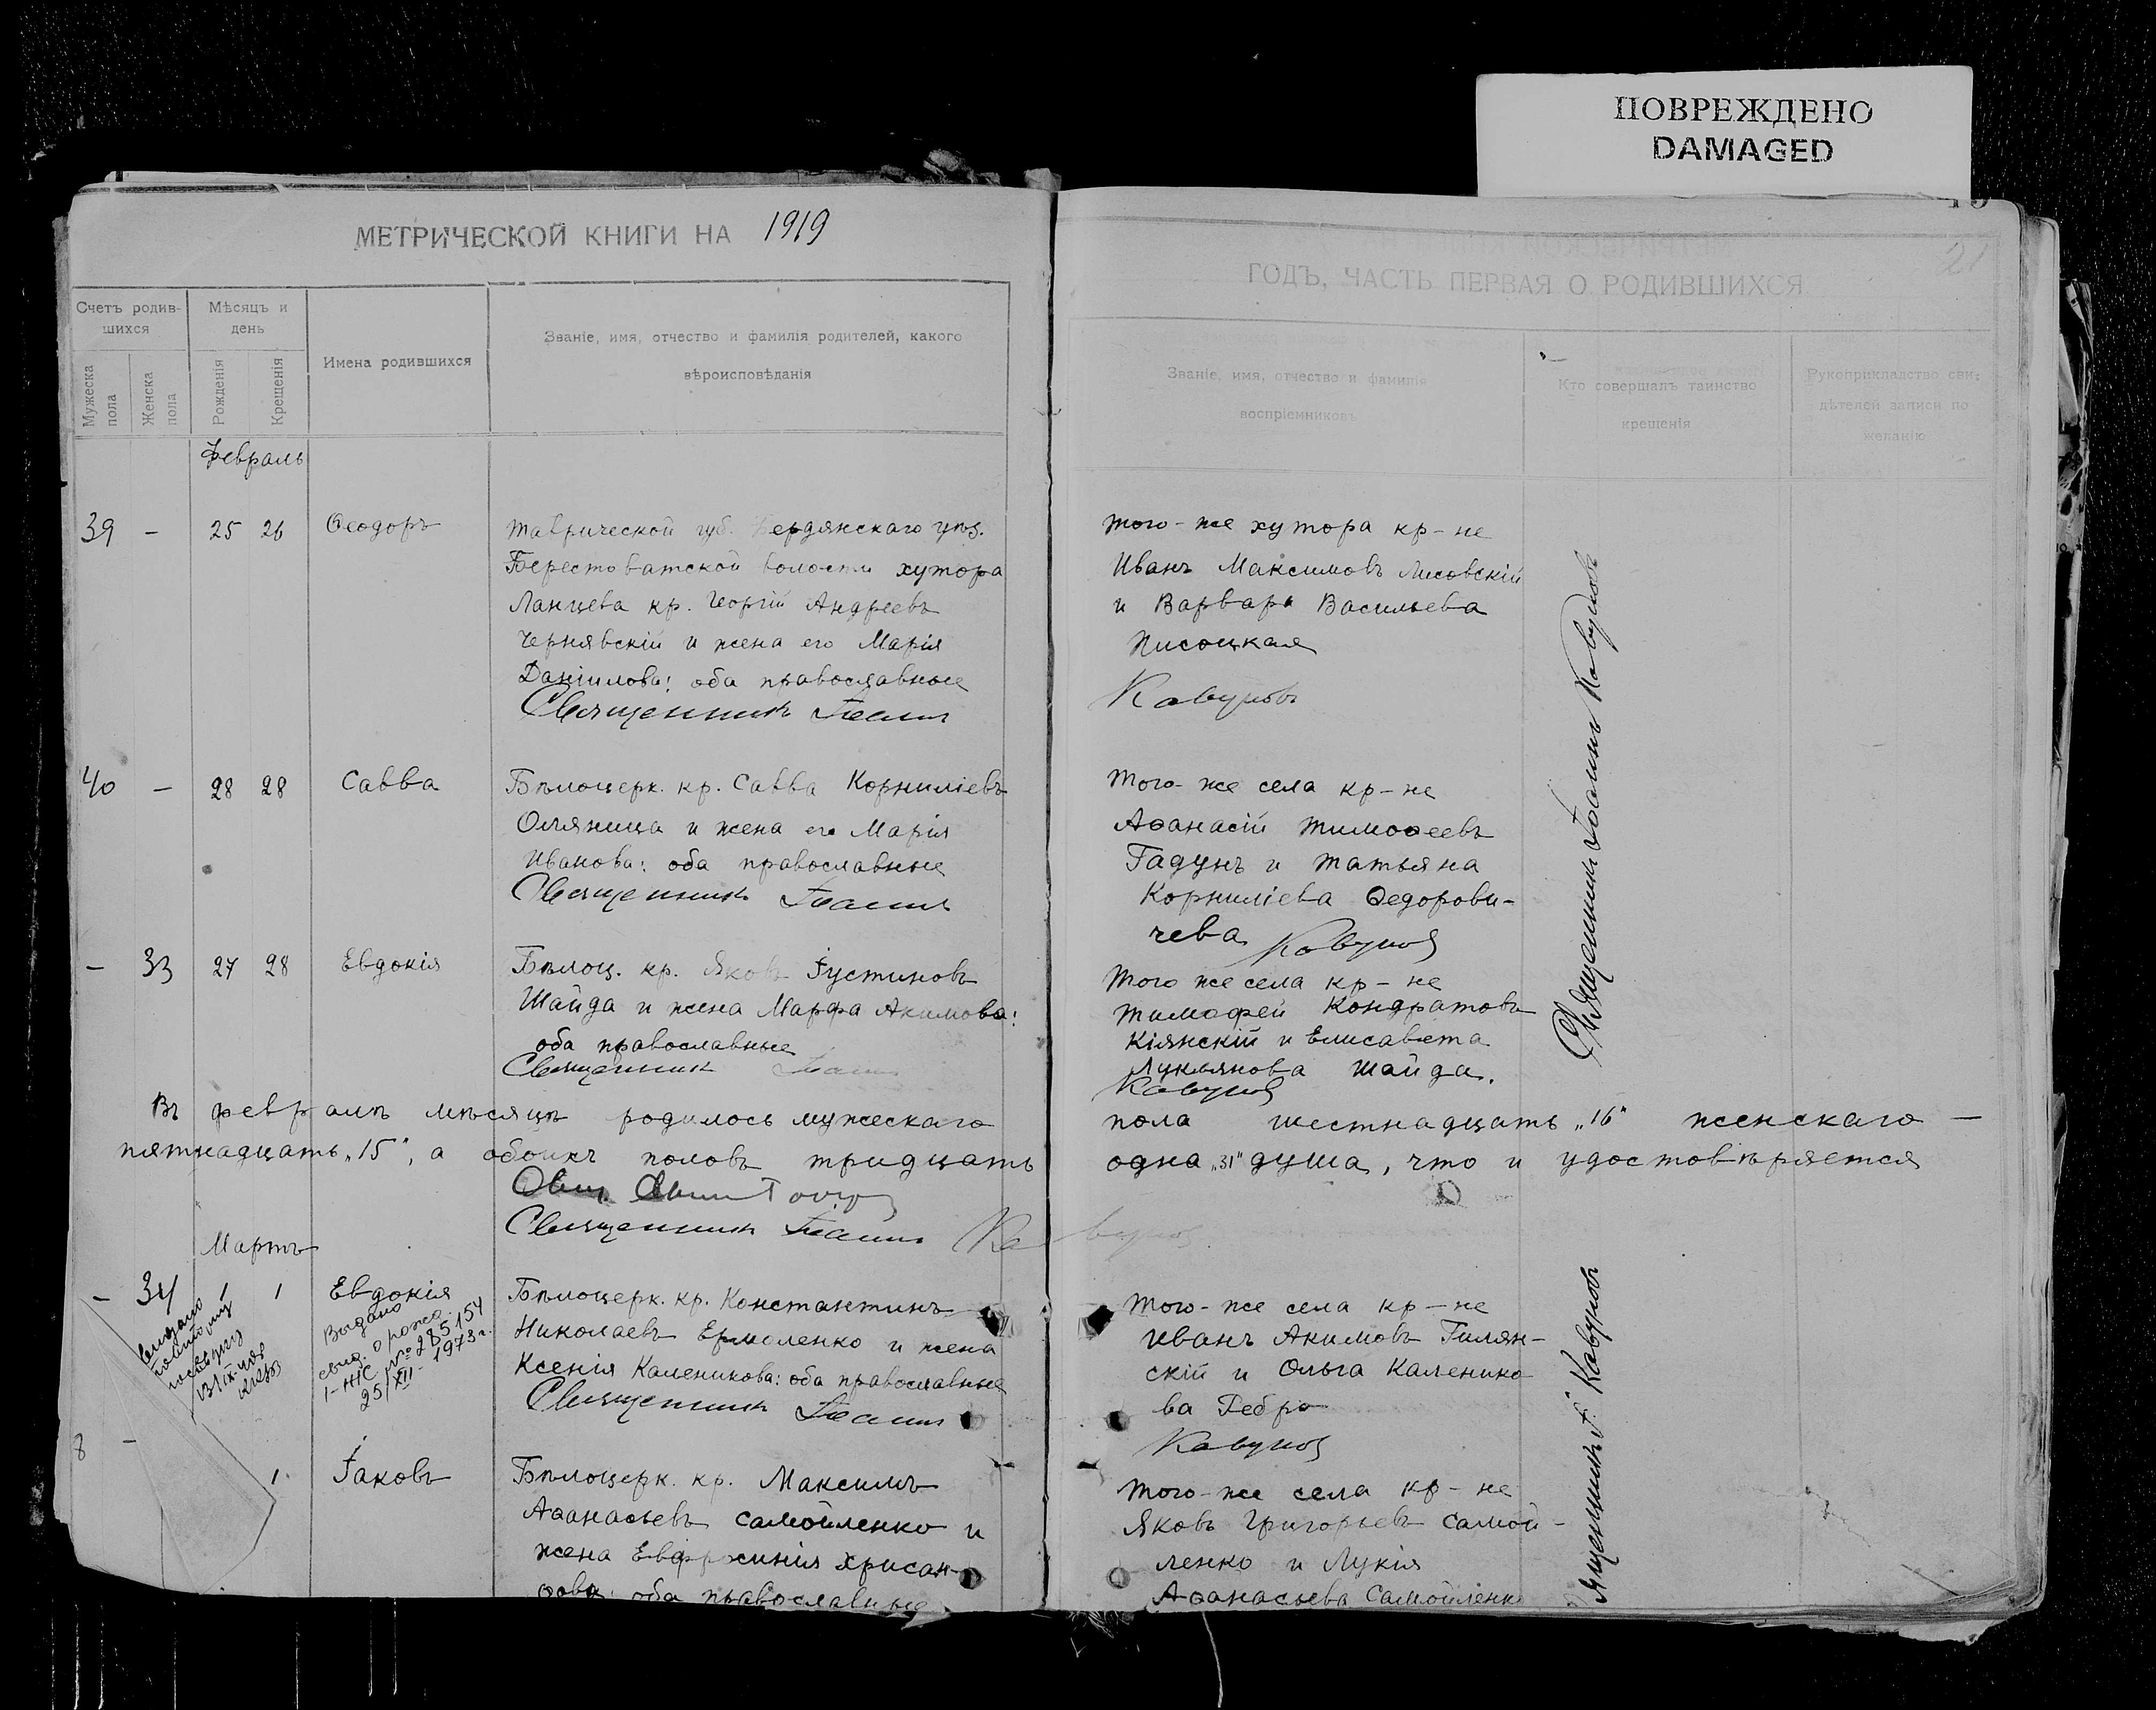 ПОВРЕЖДЕНО
DAMAGED
МЕТРИЧЕСКОЙ КНИГИ НА 1919
Счетъ родив-
шихся
Мѣсяцъ и
день
Имена родившихся
Званіе, имя, отчество и фамилія родителей, какого
вѣроисповѣданія
Мужеска
пола
Женска
пола
Рожденія
Крещенія
Февраль
39 – 25 26 Ѳеодоръ
Таврической губ. Бердянскаго уѣз.
Берестоватской волости хутора
Ланцева кр. Георгій Андреевъ
Чернявскій и жена его Марія
Даніилова: оба православные
Священникъ Іоаннъ
40 – 28 28 Савва
Бѣлоцерк. кр. Савва Корниліевъ
Оляница и жена его Марія
Иванова: оба православные
Священникъ Іоаннъ
– 33 27 28 Евдокія
Бѣлоц. кр. Яковъ Іустиновъ
Шайда и жена Марфа Акимова:
оба православные
Священникъ Іоаннъ
Въ февралѣ мѣсяцѣ родилось мужескаго
пятнадцать „15", а обоихъ половъ тридцать
Священникъ Іоаннъ Кавуновъ
Мартъ
– 34 1 1 Евдокія
Выдано
свид. о рожд.
1-НС № 285154
25/XII- 1973 г.
Бѣлоцерк. кр. Константинъ
Николаевъ Ермоленко и жена
Ксенія Каленикова: оба православные
Священникъ Іоаннъ
8 – 1 Іаковъ
Бѣлоцерк. кр. Максимъ
Аѳанасьевъ Самойленко и
жена Евфросинія Хрисан-
ѳова: оба православные
21
ГОДЪ, ЧАСТЬ ПЕРВАЯ О РОДИВШИХСЯ
Званіе, имя, отчество и фамилія
воспріемниковъ
Кто совершалъ таинство
крещенія
Рукоприкладство сви-
дѣтелей записи по
желанію
Того-же хутора кр-не
Иванъ Максимовъ Лисовскій
и Варвара Васильева
Писоцкая
Кавуновъ
Того-же села кр-не
Аѳанасій Тимоѳеевъ
Гадунъ и Татьяна
Корниліева Ѳедорови-
чева
Кавуновъ
Того же села кр-не
Тимофей Кондратовъ
Кіянскій и Елисавета
Лукьянова Шайда.
Кавуновъ
Священникъ Іоаннъ Кавуновъ
пола шестнадцать „16" женскаго –
одна „31" душа, что и удостовѣряется
Того-же села кр-не
Иванъ Акимовъ Гилян-
скій и Ольга Каленико
ва Ребро
Кавуновъ
Того-же села кр-не
Яковъ Григорьевъ Самой-
ленко и Лукія
Аѳанасьева Самойленко
Священникъ І. Кавуновъ